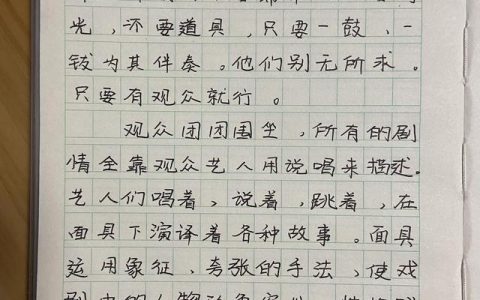 光，不要道具，只要一鼓、一
钹为其伴奏。他们别无所求。
只要有观众就行。
观众团团围坐，所有的剧
情全靠观众艺人用说唱来描述。
艺人们唱着，说着，跳着，在
面具下演译着各种故事。面具
运用象征，夸张的手法，使戏